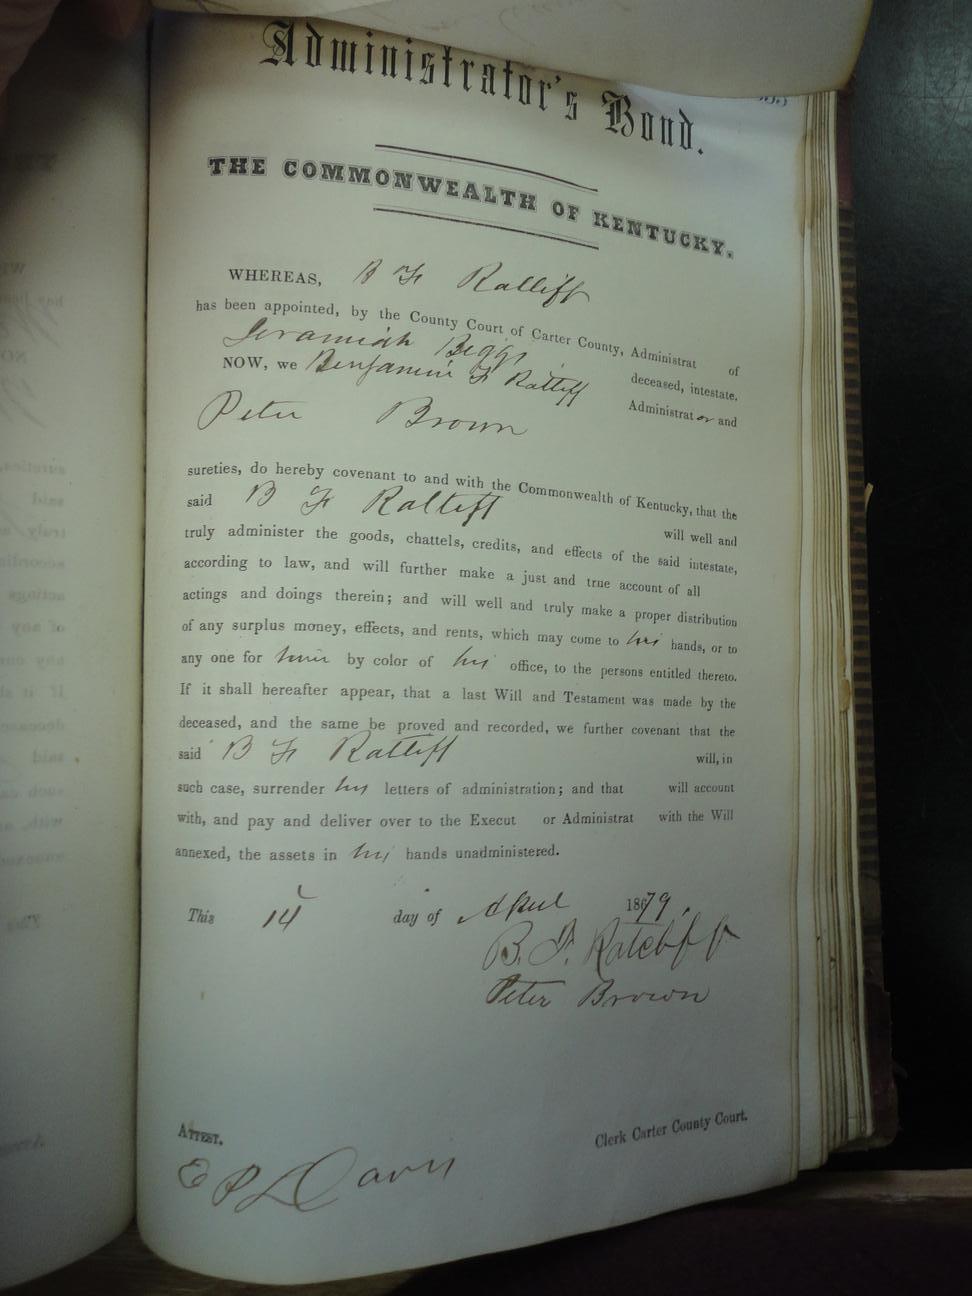 Administrator's Bond.
THE COMMONWEALTH OF KENTUCKY.
WHEREAS, B F Ratliff
has been appointed, by the County Court of Carter County, Administrat of
Jeramiah Beggs deceased, intestate.
NOW, we Benjamin F Ratliff Administrator and
Peter Brown
sureties, do hereby covenant to and with the Commonwealth of Kentucky, that the
said B F Ratliff will well and
truly administer the goods, chattels, credits, and effects of the said intestate,
according to law, and will further make a just and true account of all
actings and doings therein; and will well and truly make a proper distribution
of any surplus money, effects, and rents, which may come to his hands, or to
any one for him by color of his office, to the persons entitled thereto.
If it shall hereafter appear, that a last Will and Testament was made by the
deceased, and the same be proved and recorded, we further covenant that the
said B F Ratliff will, in
such case, surrender his letters of administration; and that will account
with, and pay and deliver over to the Execut or Administrat with the Will
annexed, the assets in his hands unadministered.
This 14 day of April 1879.
B. F. Ratcliff
Peter Brown
ATTEST.
Clerk Carter County Court.
E P Davis